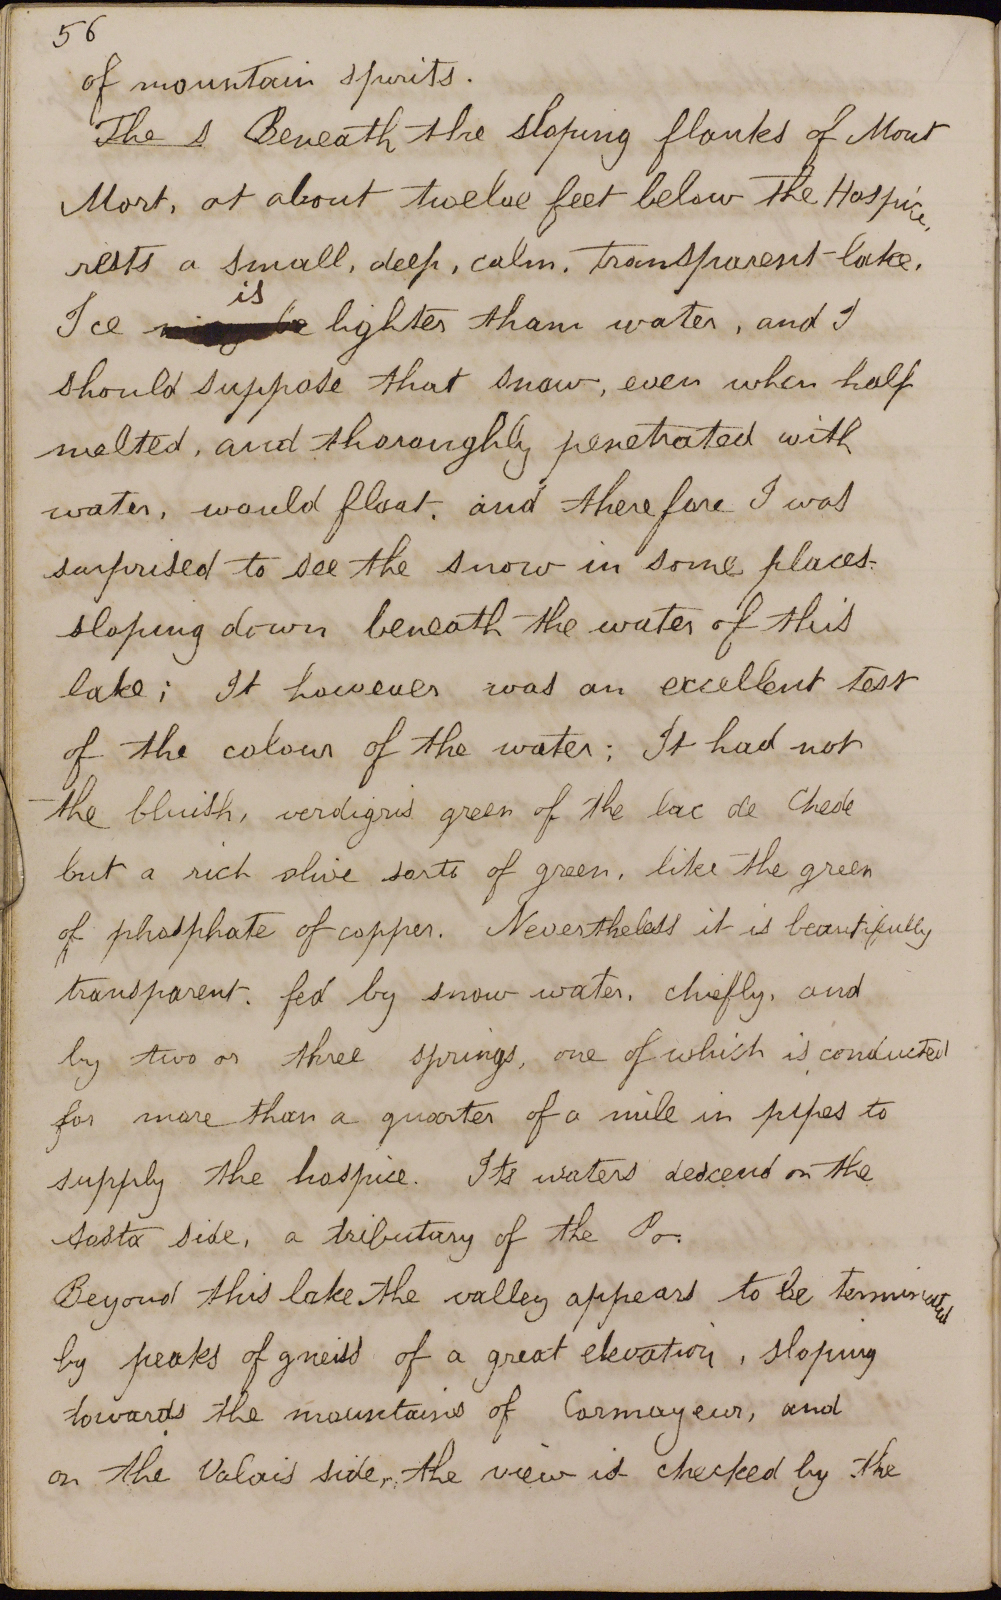 56
of mountain spirits.
The s Beneath the sloping flanks of Mont
Mort, at about twelve feet below the Hospice,
rests a small, deep, calm, transparent lake.
is
Ice may be lighter tham water, and I
should suppose that snow, even when half
melted, and thoroughly penetrated with
water, would float, and therefore I was
surprised to see the snow in some places
sloping down beneath the water of this
lake; It however was an excellent test
of the colour of the water; It had not
the bluish, verdigris green of the lac de Chede
but a rich olive sorts of green, like the green
of phosphate of copper. Nevertheless it is beautifully
transparent. fed by snow water, chiefly, and
by two or three springs, one of which is conducted
for more than a quarter of a mile in pipes to
supply the hospice. Its waters descend on the
Aosta side, a tributary of the Po.
Beyond this lake the valley appears to be terminated
by peaks of gneiss of a great elevation, sloping
towards the mountains of Cormayeur, and
on the Valais side, the view is checked by the